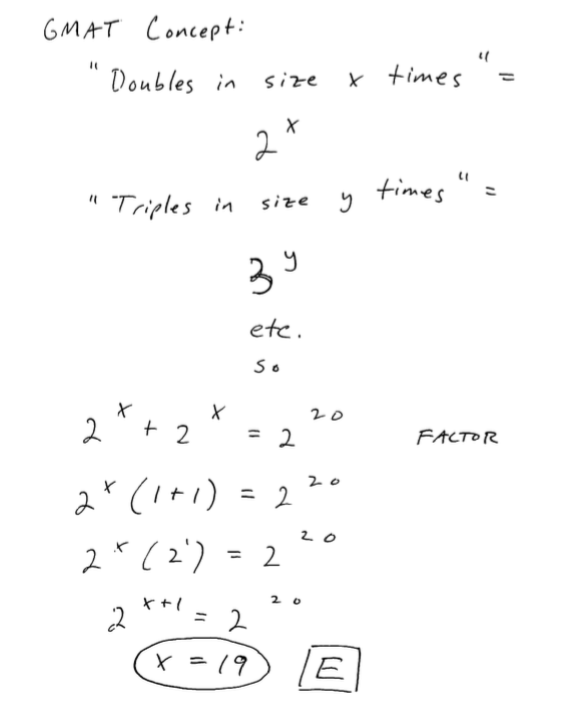 GMAT Concept:
"Doubles in size x times" =
2^x
"Triples in size y times" =
3^y
etc.
so
2^x + 2^x = 2^20 FACTOR
2^x (1+1) = 2^20
2^x (2^1) = 2^20
2^x+1 = 2^20
x = 19 E